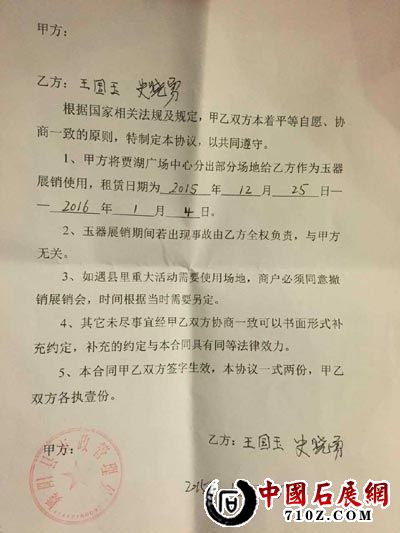 甲方：
乙方：王国玉 史晓勇
根据国家相关法规及规定，甲乙双方本着平等自愿、协
商一致的原则，特制定本协议，以共同遵守。
1、甲方将贾湖广场中心分出部分场地给乙方作为玉器
展销使用，租赁日期为 2015 年 12 月 25 日—
— 2016 年 1 月 4 日。
2、玉器展销期间若出现事故由乙方全权负责，与甲方
无关。
3、如遇县里重大活动需要使用场地，商户必须同意撤
销展销会，时间根据当时需要另定。
4、其它未尽事宜经甲乙双方协商一致可以书面形式补
充约定，补充的约定与本合同具有同等法律效力。
5、本合同甲乙双方签字生效，本协议一式两份，甲乙
双方各执壹份。
甲方：
乙方：王国玉 史晓勇
2015
中國石展網
710Z.COM